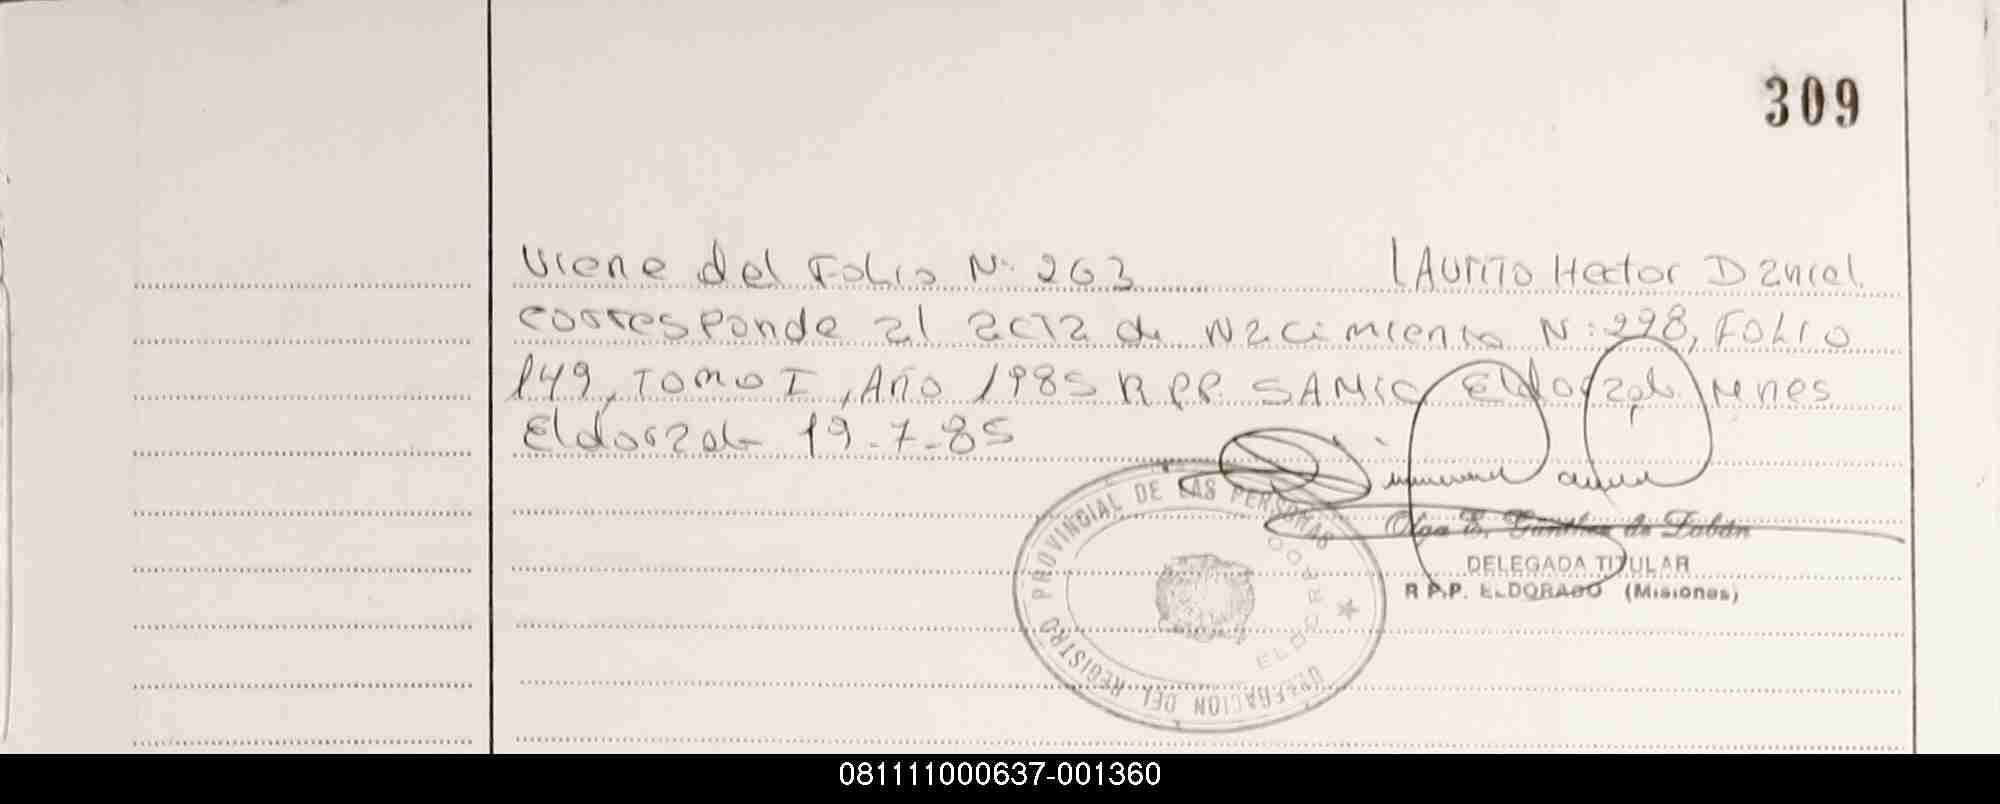 309
Viene del Folio N: 263 Laurito Hector Daniel
corresponde al acta de Nacimiento N: 298, Folio
149, Tomo I, Año 1985 R.P.P. SAMIC Eldorado Mnes
Eldorado 19-7-85
REGISTRO PROVINCIAL DE LAS PERSONAS
DELEGACION DEL
ELDORADO
Olga E. de Fabán
DELEGADA TITULAR
R.P.P. ELDORADO (Misiones)
081111000637-001360